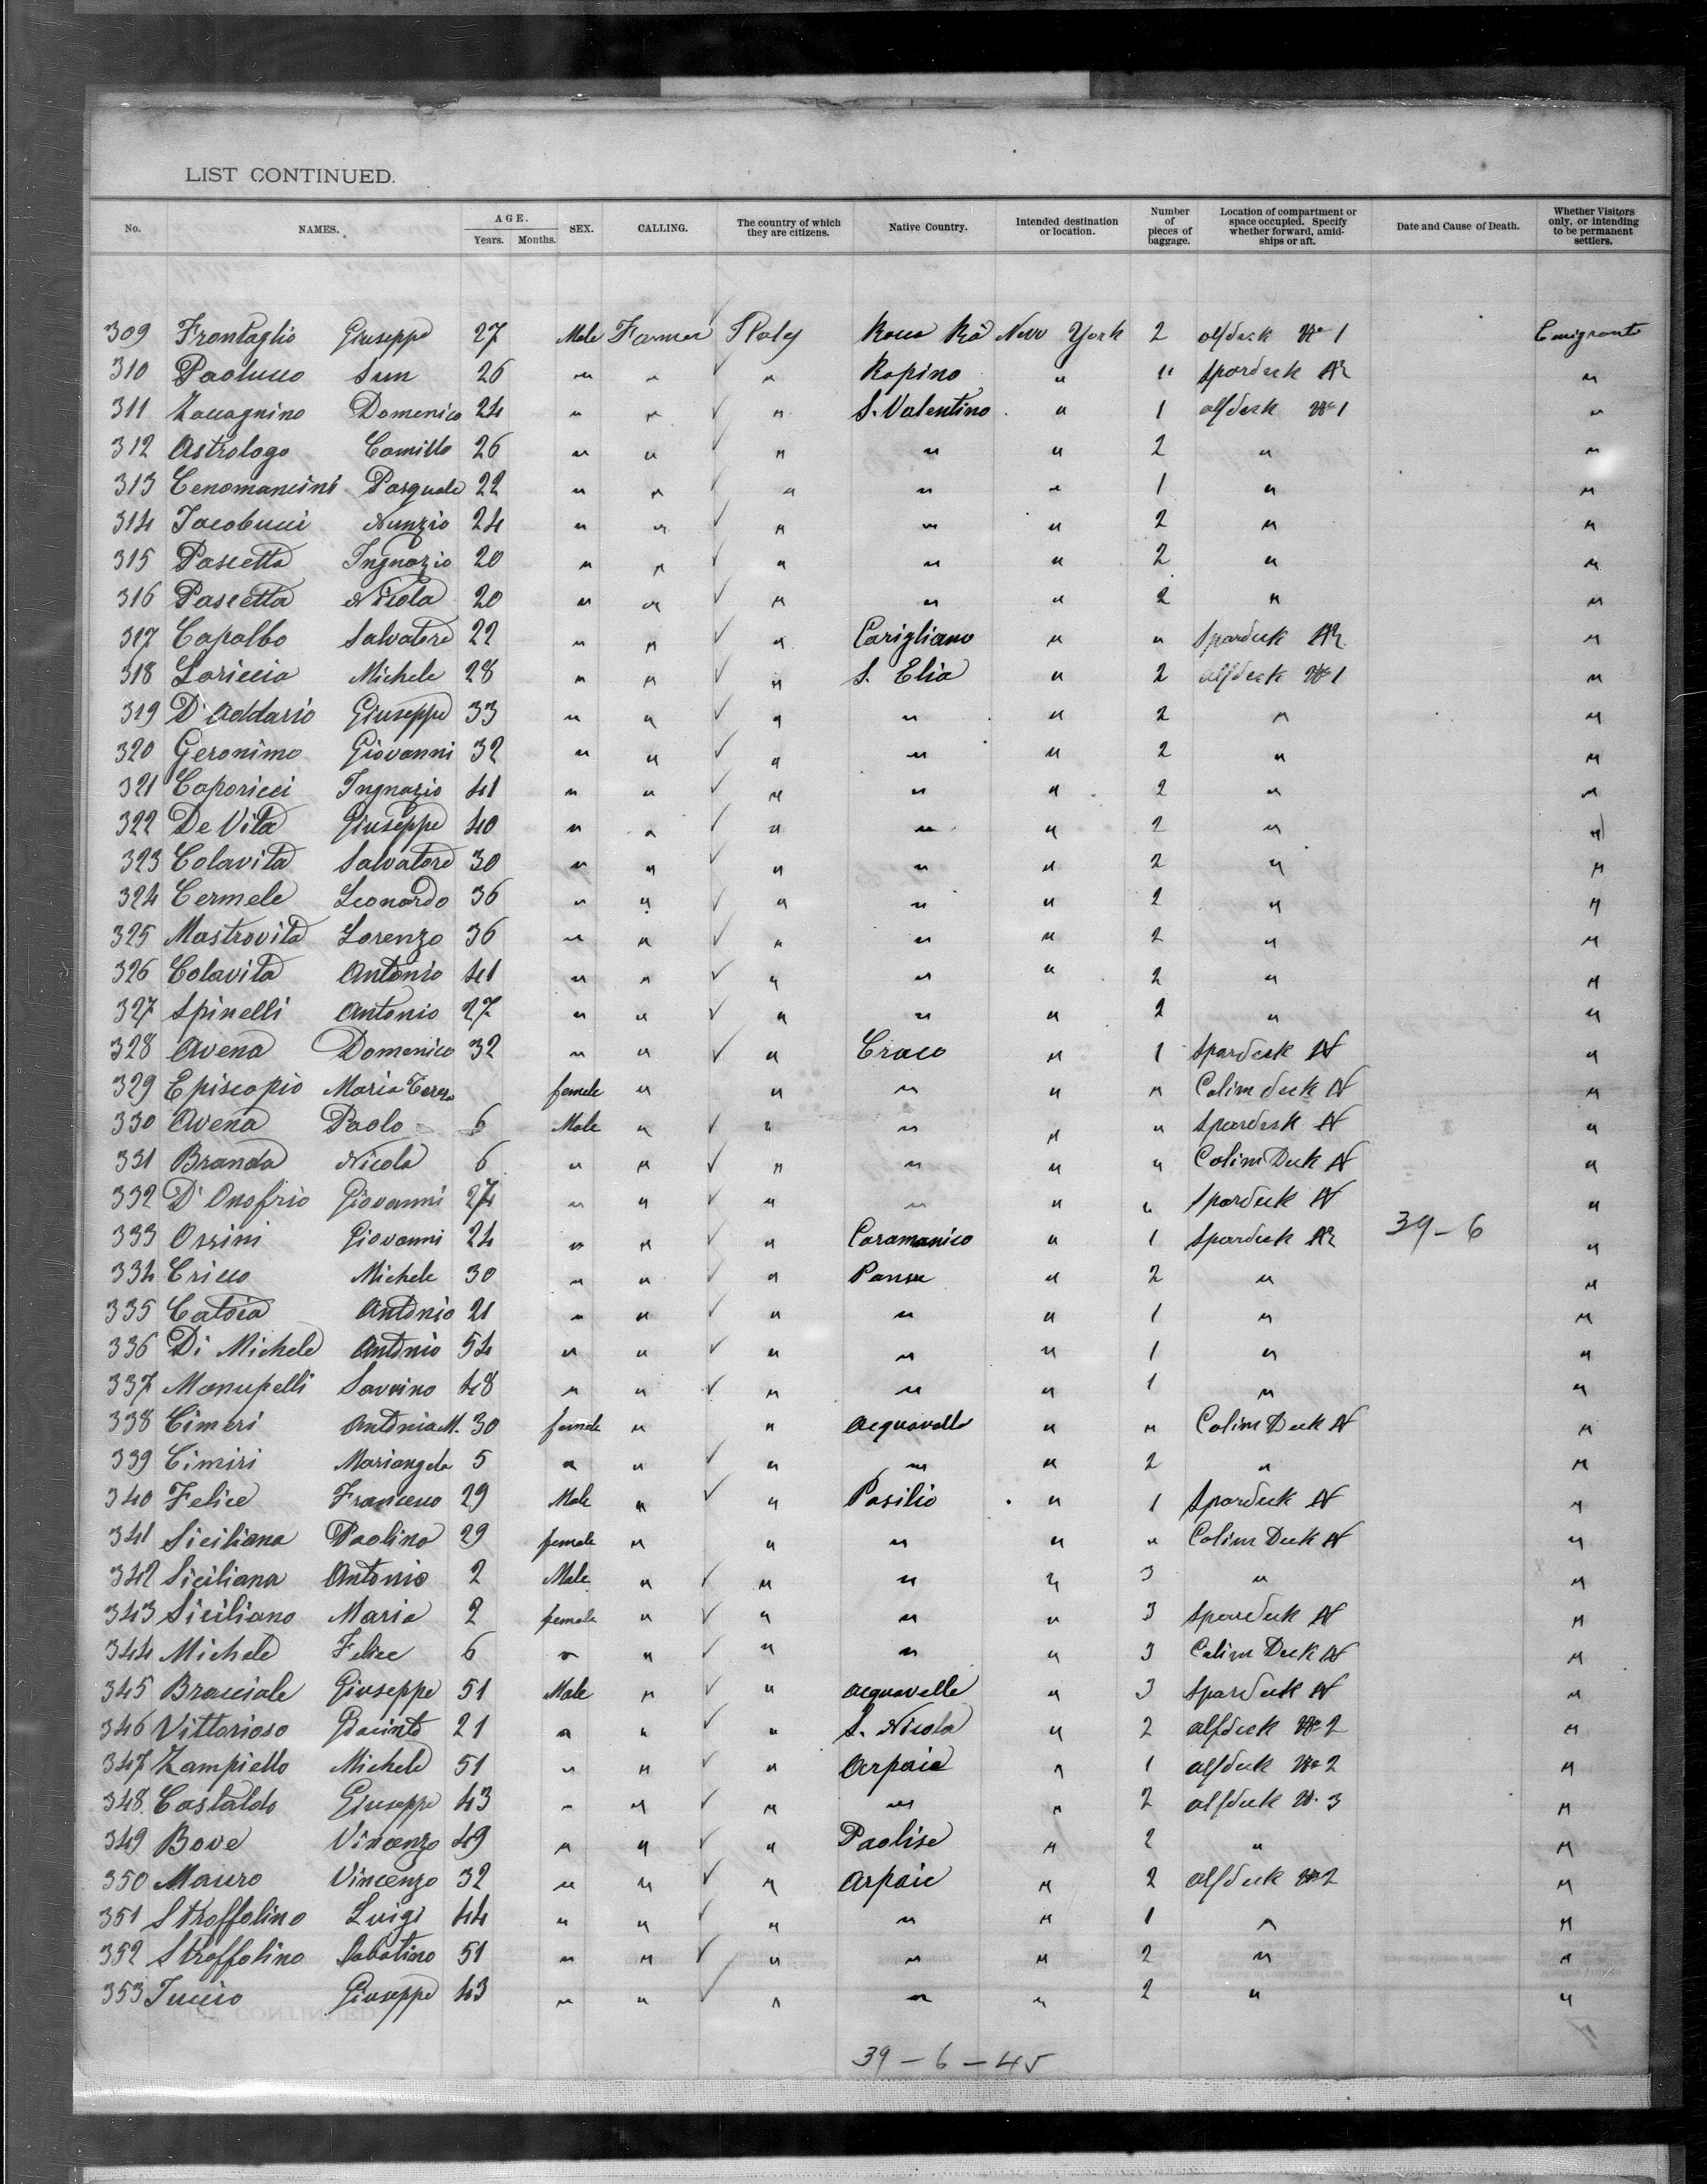 LIST CONTINUED.
No. NAMES. AGE. Years. Months. SEX. CALLING. The country of which they are citizens. Native Country. Intended destination or location. Number of pieces of baggage. Location of compartment or space occupied. Specify whether forward, amidships or aft. Date and Cause of Death. Whether Visitors only, or intending to be permanent settlers.
309 Frontaglio Giuseppe 27 Male Farmer Italy New York 2 1 Emigrants
310 Paolucco 26 " " " Rapino " " spardeck "
311 Zaccagnino Domenico 24 " " " S. Valentino " 1 1 "
312 Astrologo Camillo 26 " " " " " 2 " "
313 Cenomancini Pasquale 22 " " " " " 1 " "
314 Jacobucci Nunzio 24 " " " " " 2 " "
315 Pascetta Ingnazio 20 " " " " " 2 " "
316 Pascetta Nicola 20 " " " " " 2 " "
317 Capalbo Salvatore 22 " " " Corigliano " " Spardeck "
318 Lariccia Michele 28 " " " S. Elia " 2 1 "
319 D'Addario Giuseppe 33 " " " " " 2 " "
320 Geronimo Giovanni 32 " " " " " 2 " "
321 Caporicci Ingnazio 41 " " " " " 2 " "
322 De Vita Giuseppe 40 " " " " " 2 " "
323 Colavita Salvatore 30 " " " " " 2 " "
324 Cermele Leonardo 36 " " " " " 2 " "
325 Mastrovita Lorenzo 36 " " " " " 2 " "
326 Colavita Antonio 41 " " " " " 2 " "
327 Spinelli Antonio 27 " " " " " 2 " "
328 Avena Domenico 32 " " " Craco " 1 Spardeck "
329 Episcopio Maria Teresa female " " " " " Colim deck "
330 Avena Paolo 6 Male " " " " " Spardeck "
331 Branda Nicola 6 " " " " " " Colim Deck "
332 D'Onofrio Giovanni 27 " " " " " " Spardeck "
333 Orsini Giovanni 24 " " " Caramanico " 1 Spardeck 39-6 "
334 Cricco Michele 30 " " " " 2 " "
335 Catoia Antonio 21 " " " " " 1 " "
336 Di Michele Antonio 54 " " " " " 1 " "
337 Manupelli Savino 48 " " " " " 1 " "
338 Cimeri Antonia M. 30 female " " Acquavella " " Colim Deck "
339 Cimiri Mariangela 5 " " " " " 2 " "
340 Felice Francesco 29 Male " " Pasilio " 1 Spardeck "
341 Siciliana Paolina 29 female " " " " " Colim Deck "
342 Siciliana Antonio 2 Male " " " " 3 " "
343 Siciliano Maria 2 female " " " " 3 Spardeck "
344 Michele Felice 6 " " " " " 3 Colim Deck "
345 Bracciale Giuseppe 51 Male " " Acquavelle " 3 Spardeck "
346 Vittorioso Giacinto 21 " " " S. Nicola " 2 2 "
347 Zampiello Michele 51 " " " Arpaia " 1 2 "
348 Castaldo Giuseppe 43 " " " " " 2 3 "
349 Bove Vincenzo 49 " " " Paolise " 2 " "
350 Mauro Vincenzo 32 " " " Arpaie " 2 2 "
351 Stroffolino Luigi 44 " " " " " 1 " "
352 Stroffolino Sabatino 51 " " " " " 2 " "
353 Giuseppe 43 " " " " " 2 " "
39-6-45